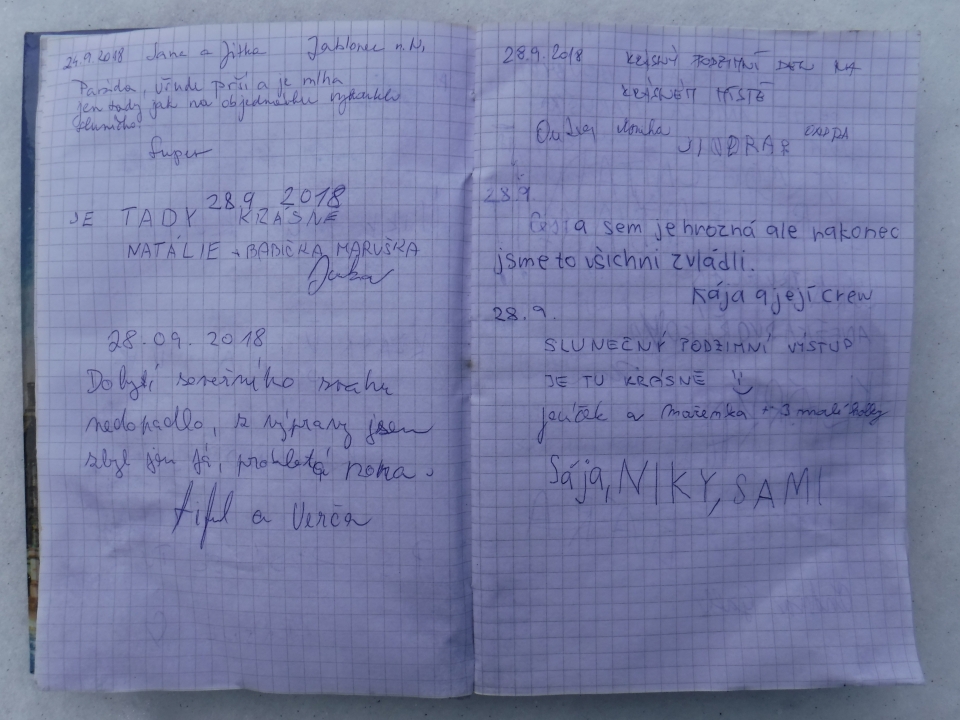 24.9.2018 Jana a Jitka Jablonec n. N.
Paráda, všude prší a je mlha
jen tady jak na objednávku vykouklo
sluníčko.
Super
28.9 2018
JE TADY KRÁSNĚ
NATÁLIE + BABIČKA MARUŠKA
28.09.2018
Dobytí severního svahu
nedopadlo, z výpravy jsem
zbyl jen já, prokletá noha.
a Verča
28.9.2018 KRÁSNÝ PODZIMNÍ DEN NA
KRÁSNÉM MÍSTĚ
JINDRA
28.9.
Cesta sem je hrozná ale nakonec
jsme to všichni zvládli.
Kája a její crew
28.9.
SLUNEČNÝ PODZIMNÍ VÝSTUP
JE TU KRÁSNĚ
Jeníček a Mařenka + 3 malé holky
Sája, NIKY, SAMI